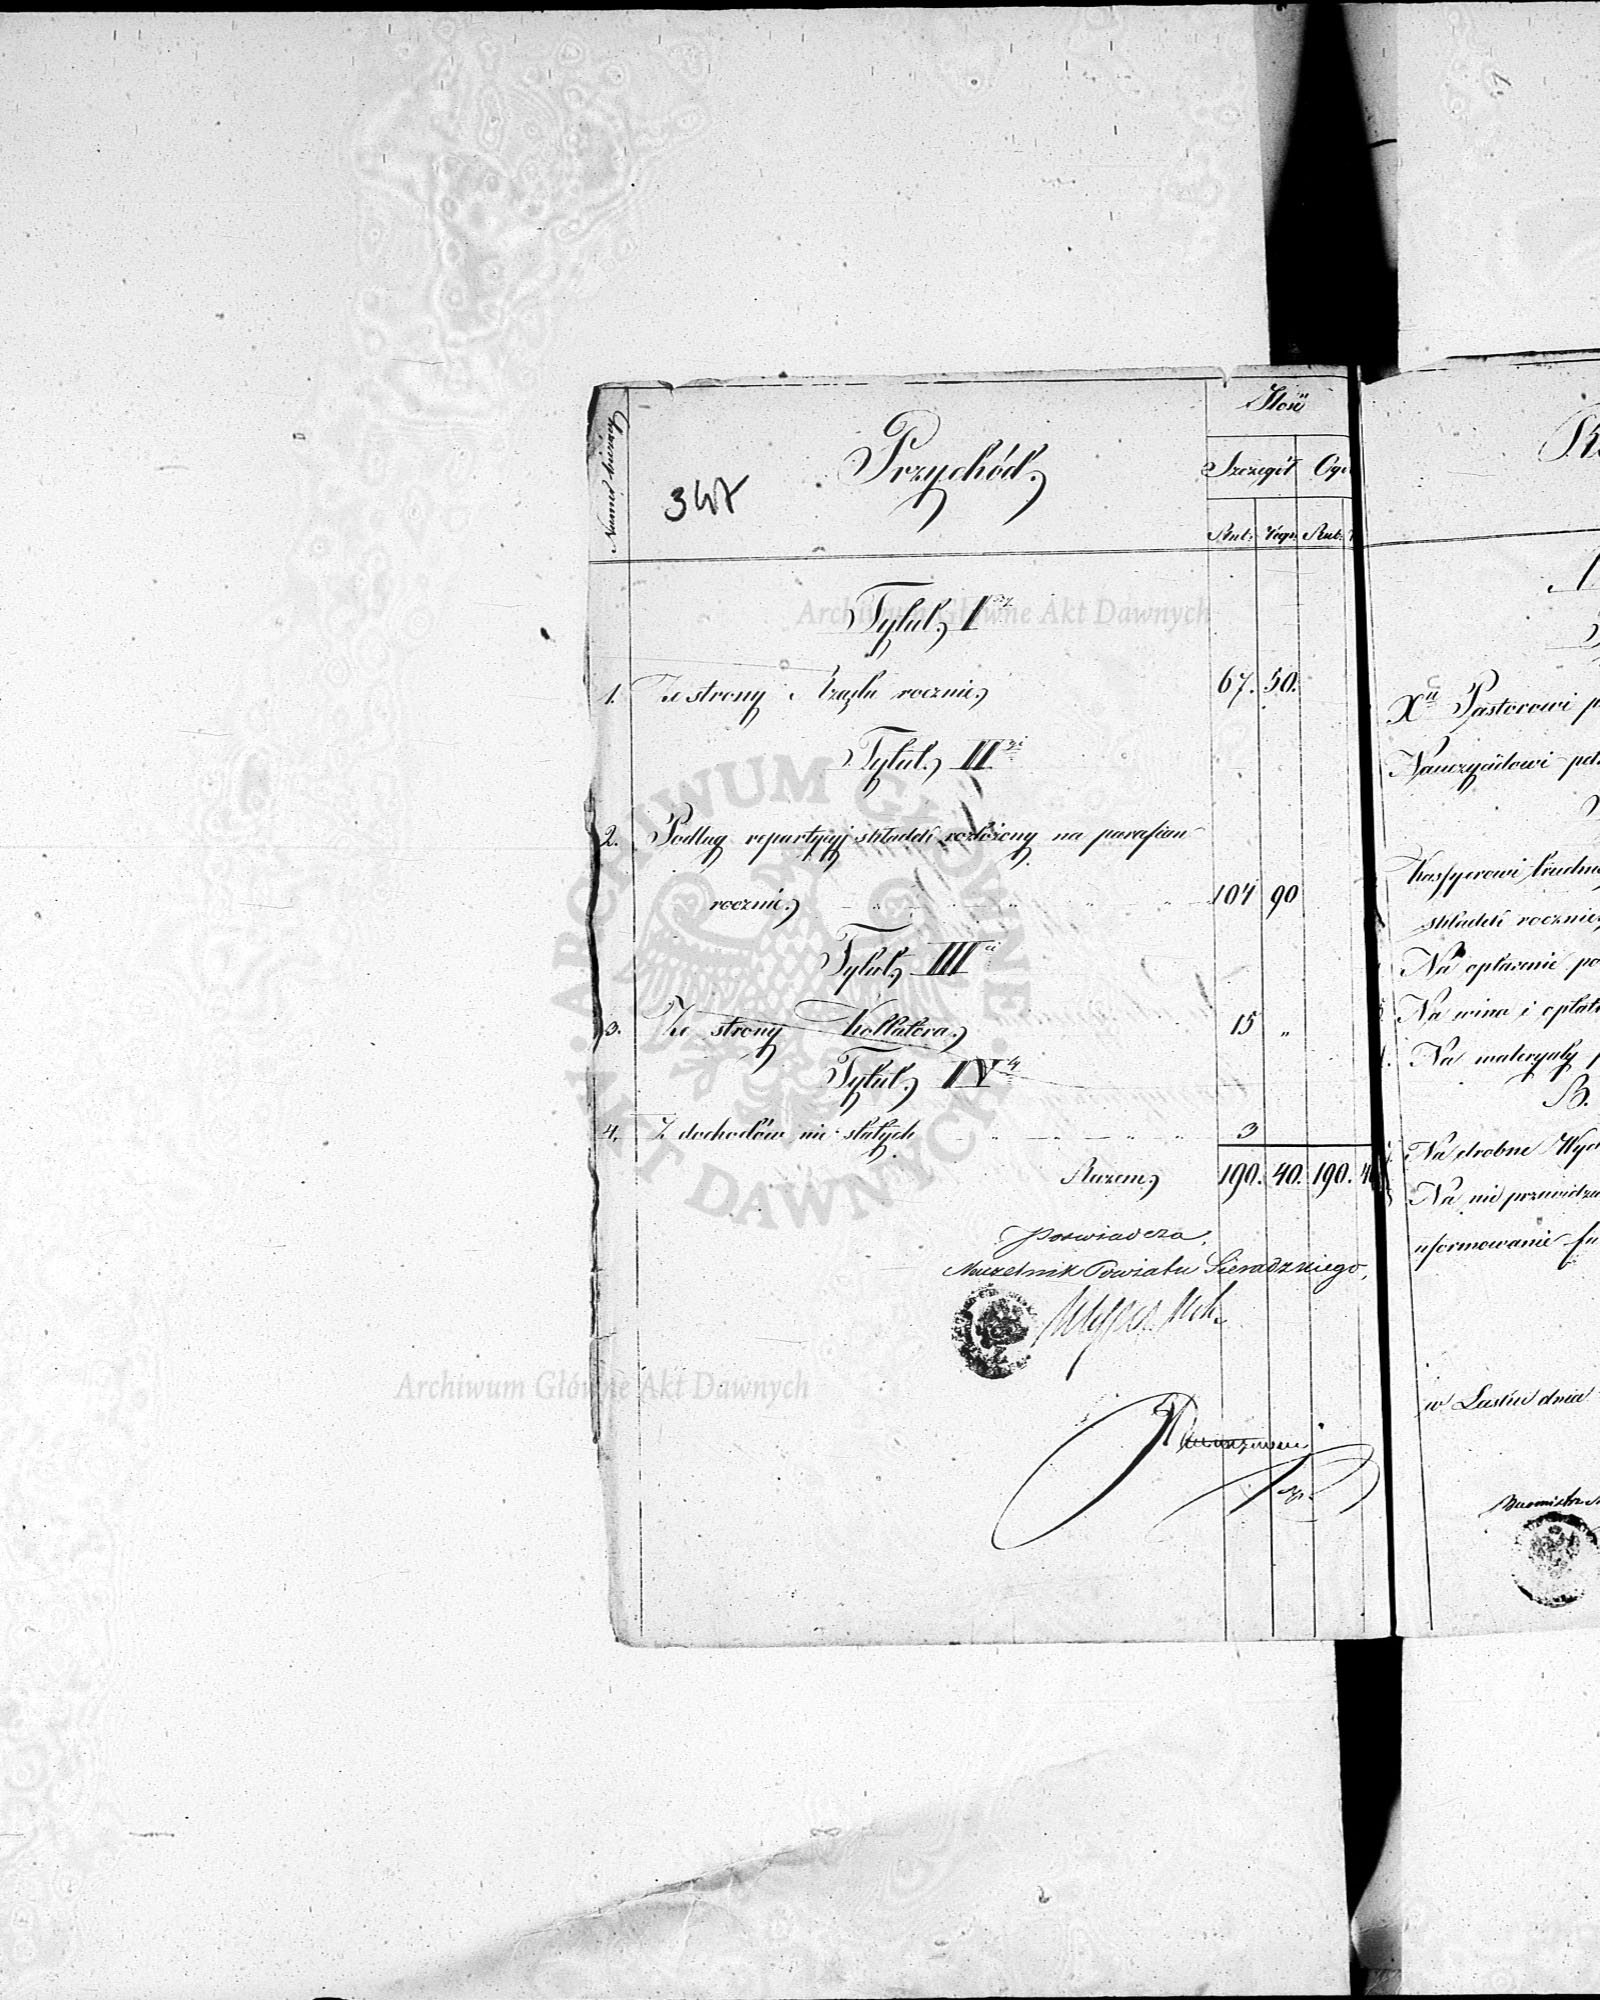 Numer bieżący
347
Przychód.
Ilość
Szczegół
Rub:
Kop:
Rub:
Tytuł I szy
1. Ze strony Rządu rocznie 67. 50.
Tytuł II gi
2. Podług repartycyj składki rozłożony na parafian
rocznie 104 90
Tytuł III ci
3. Ze strony Kollatora 15 "
Tytuł IV ty
4. Z dochodów nie stałych 3
Razem 190. 40. 190. 40
Poświadcza,
Naczelnik Powiatu Sieradzkiego,
Xu Pastorowi
Nauczycielowi
Kassyerowi
składki rocznie
Na opłacenie
Na wino i opłat
Na materyały
B.
Na drobne
Na nie przewidz
uformowanie
w Lasku dnia
Burmistrz
Archiwum Główne Akt Dawnych
Archiwum Główne Akt Dawnych
ARCHIWUM GŁÓWNE AKT DAWNYCH